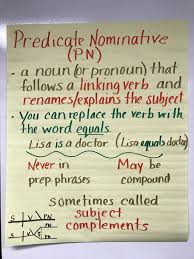 Predicate Nominative
(PN)
- a noun (or pronoun) that
follows a linking verb and
renames/explains the subject
• You can replace the verb with
the word equals.
Lisa is a doctor. (Lisa equals doctor)
Never in May be
prep phrases compound
sometimes called
subject
complements
S V PN
S V PN
PN